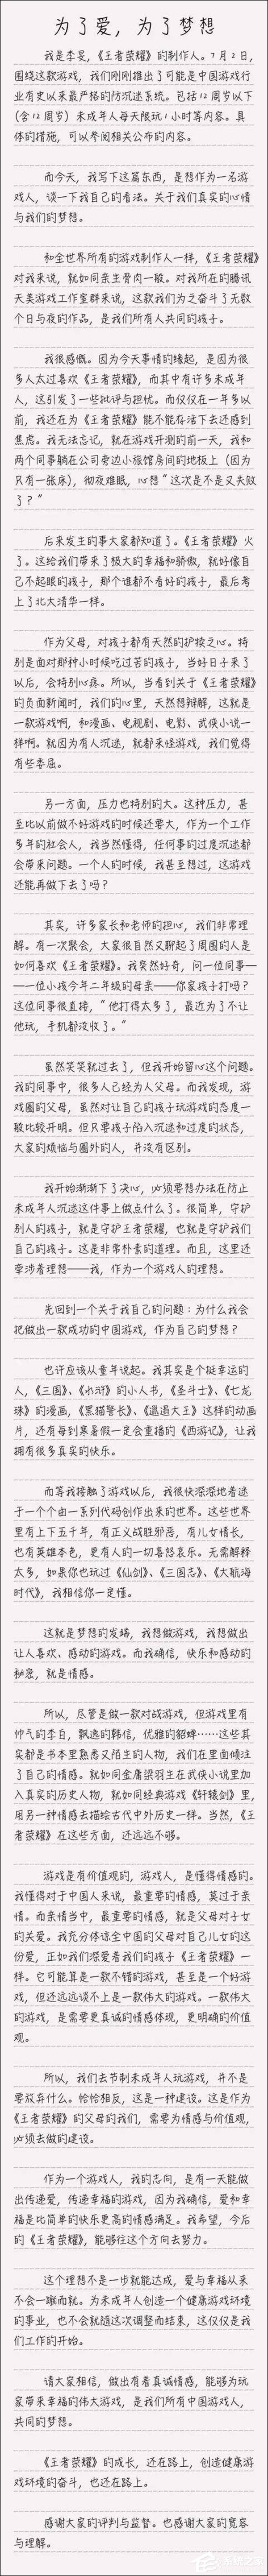 为了爱，为了梦想
我是李旻，《王者荣耀》的制作人。7月2日，
围绕这款游戏，我们刚刚推出了可能是中国游戏行
业有史以来最严格的防沉迷系统。包括12周岁以下
（含12周岁）未成年人每天限玩1小时等内容。具
体的措施，可以参阅相关公布的内容。
而今天，我写下这篇东西，是想作为一名游
戏人，谈一下我自己的看法。关于我们真实的心情
与我们的梦想。
和全世界所有的游戏制作人一样，《王者荣耀》
对我来说，就如同亲生骨肉一般。对我所在的腾讯
天美游戏工作室群来说，这款我们为之奋斗了无数
个日与夜的作品，是我们所有人共同的孩子。
我很感慨。因为今天事情的缘起，是因为很
多人太过喜欢《王者荣耀》，而其中有许多未成年
人，这引发了一些批评与担忧。而仅仅在一年多以
前，我还在为《王者荣耀》能不能存活下去还感到
焦虑。我无法忘记，就在游戏开测的前一天，我和
两个同事躺在公司旁边小旅馆房间的地板上（因为
只有一张床），彻夜难眠，心想“这次是不是又失败
了？”
后来发生的事大家都知道了。《王者荣耀》火
了。这给我们带来了极大的幸福和骄傲，就好像自
己不起眼的孩子，那个谁都不看好的孩子，最后考
上了北大清华一样。
作为父母，对孩子都有天然的护犊之心。特
别是面对那种小时候吃过苦的孩子，当好日子来了
以后，会特别心疼。所以，当看到关于《王者荣耀》
的负面新闻时，我们的心里，天然想辩解，这就是
一款游戏啊，和漫画、电视剧、电影、武侠小说一
样啊。就因为有人沉迷，就都来怪游戏，我们觉得
有些委屈。
另一方面，压力也特别的大。这种压力，甚
至比以前做不好游戏的时候还要大，作为一个工作
多年的社会人，我当然懂得，任何事的过度沉迷都
会带来问题。一个人的时候，我甚至想过，这游戏
还能再做下去了吗？
其实，许多家长和老师的担心，我们非常理
解。有一次聚会，大家很自然又聊起了周围的人是
如何喜欢《王者荣耀》。我突然好奇，问一位同事——
——一位小孩今年二年级的母亲——你家孩子打吗？
这位同事很直接，“他打得太多了，最近为了不让
他玩，手机都没收了。”
虽然笑笑就过去了，但我开始留心这个问题。
我的同事中，很多人已经为人父母。而我发现，游
戏圈的父母，虽然对让自己的孩子玩游戏的态度一
般比较开明。但只要孩子陷入沉迷和过度的状态，
大家的烦恼与圈外的人，并没有区别。
我开始渐渐下了决心，必须要想办法在防止
未成年人沉迷这件事上做点什么了。很简单，守护
别人的孩子，就是守护王者荣耀，也就是守护我们
自己的孩子。这是非常朴素的道理。而且，这里还
牵涉着理想——我，作为一个游戏人的理想。
先回到一个关于我自己的问题：为什么我会
把做出一款成功的中国游戏，作为自己的梦想？
也许应该从童年说起。我其实是个挺幸运的
人，《三国》、《水浒》的小人书，《圣斗士》、《七龙
珠》的漫画，《黑猫警长》、《邋遢大王》这样的动画
片，还有每到寒暑假一定会重播的《西游记》，让我
拥有很多真实的快乐。
而等我接触了游戏以后，我很快深深地着迷
于一个个由一系列代码创作出来的世界。这些世界
里有上下五千年，有正义战胜邪恶，有儿女情长，
也有英雄本色，更有人的一切喜怒哀乐。无需解释
太多，如果你也玩过《仙剑》、《三国志》、《大航海
时代》，我相信你一定懂。
这就是梦想的发端，我想做游戏，我想做出
让人喜欢、感动的游戏。而我确信，快乐和感动的
秘密，就是情感。
所以，尽管是做一款对战游戏，但游戏里有
帅气的李白，飘逸的韩信，优雅的貂蝉……这些其
实都是书本里熟悉又陌生的人物，我们在里面倾注
了自己的情感。就如同金庸梁羽生在武侠小说里加
入真实的历史人物，就如同经典游戏《轩辕剑》里，
用另一种情感去描绘古代中外历史一样。当然，《王
者荣耀》在这些方面，还远远不够。
游戏是有价值观的，游戏人，是懂得情感的。
我懂得对于中国人来说，最重要的情感，莫过于亲
情。而亲情当中，最重要的情感，就是父母对子女
的关爱。我充分体谅全中国的父母对自己儿女的这
份爱，正如我们深爱着我们的孩子《王者荣耀》一
样。它可能算是一款不错的游戏，甚至是一个好游
戏，但还远远谈不上是一款伟大的游戏。一款伟大
的游戏，是需要更真诚的情感体现，更明确的价值
观。
所以，我们去节制未成年人玩游戏，并不是
要放弃什么。恰恰相反，这是一种建设。这是作为
《王者荣耀》的父母的我们，需要为情感与价值观，
必须去做的建设。
作为一个游戏人，我的志向，是有一天能做
出传递爱，传递幸福的游戏，因为我确信，爱和幸
福是比简单的快乐更高的情感满足。我希望，今后
的《王者荣耀》，能够往这个方向去努力。
这个理想不是一步就能达成，爱与幸福从来
不会一蹴而就。为未成年人创造一个健康游戏环境
的事业，也不会就随这次调整而结束，这仅仅是我
们工作的开始。
请大家相信，做出有着真诚情感，能够为玩
家带来幸福的伟大游戏，是我们所有中国游戏人，
共同的梦想。
《王者荣耀》的成长，还在路上，创造健康游
戏环境的奋斗，也还在路上。
感谢大家的评判与监督。也感谢大家的宽容
与理解。